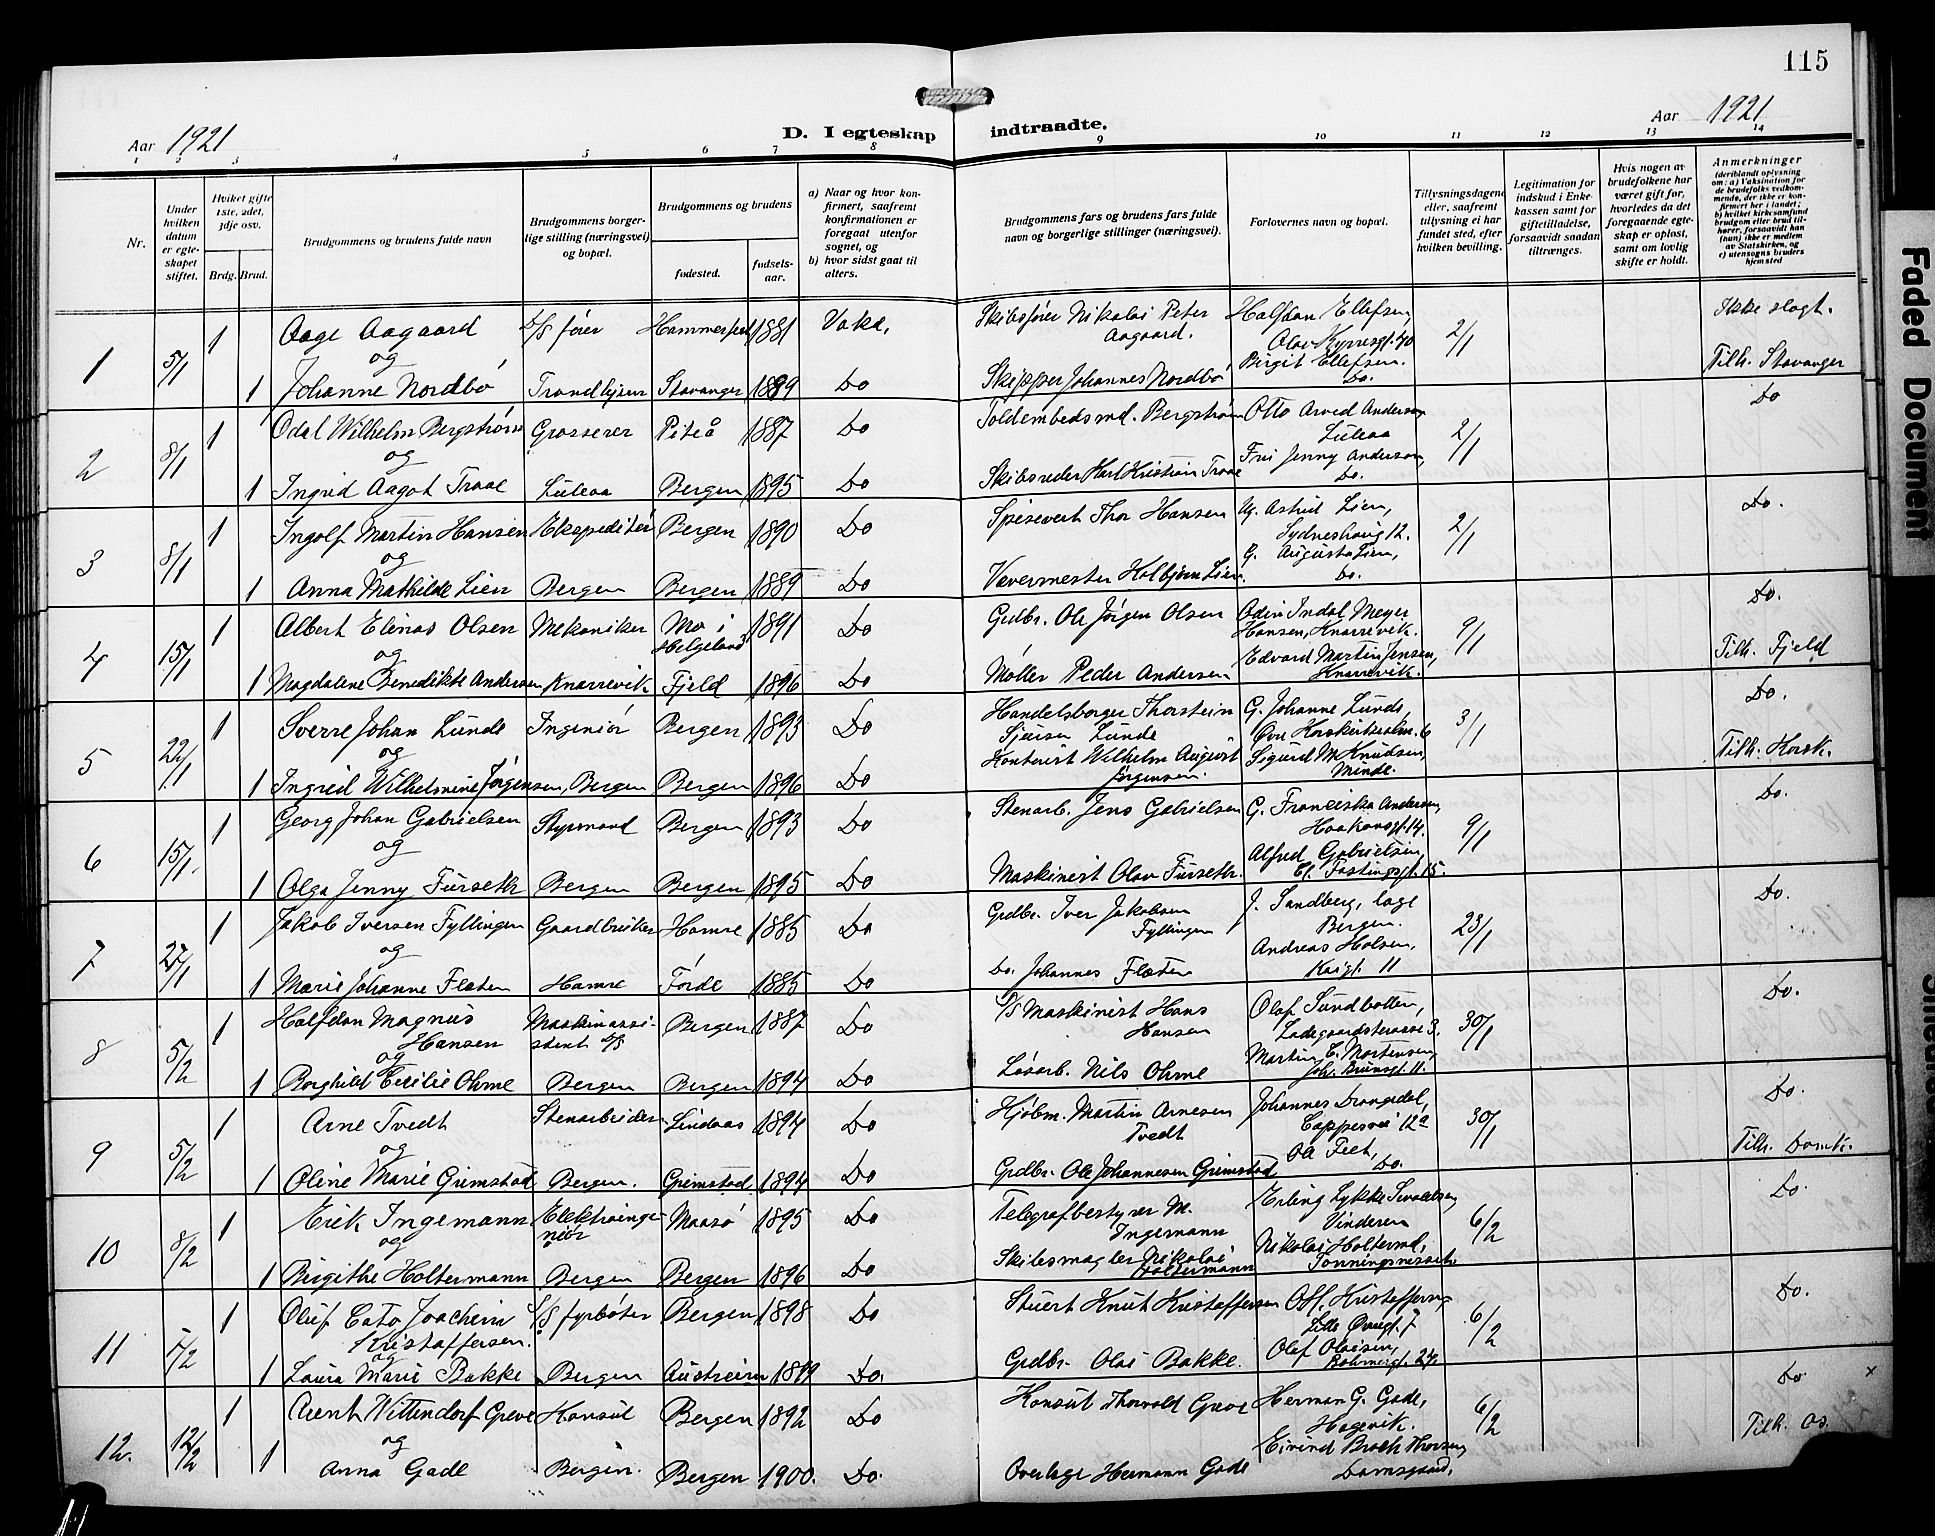 115
Aar 1921
D. I egteskap indtraadte.
Aar 1921
1 2 3 4 5 6 7 8 9 10 11 12 13 14
Nr.
Under hvilken datum er egteskapet stiftet.
Hvilket gifte 1ste, 2det, 3dje osv.
Brdg. Brud.
Brudgommens og brudens fulde navn
Brudgommens borgerlige stilling (næringsvei) og bopæl.
Brudgommens og brudens
fødested.
fødselsaar.
a) Naar og hvor konfirmert, saafremt konfirmationen er foregaat utenfor sognet, og
b) hvor sidst gaat til alters.
Brudgommens fars og brudens fars fulde navn og borgerlige stillinger (næringsvei).
Forlovernes navn og bopæl.
Tillysningsdagene eller, saafremt tillysning ei har fundet sted, efter hvilken bevilling.
Legitimation for indskud i Enkekassen samt for giftetilladelse, forsaavidt saadan tiltrænges.
Hvis nogen av brudefolkene har været gift før, hvorledes da det foregaaende egteskap er opløst, samt om lovlig skifte er holdt.
Anmerkninger
(deriblandt oplysning om: a) Vaksination for de brudefolks vedkommende, der ikke er konfirmert her i landet; b) hvilket kirkesamfund brudgom eller brud tilhører, forsaavidt han (hun) ikke er medlem av Statskirken, og c) utensogns bruders hjemsted
1 5/1 1 Aage Aagaard D/S fører Hammerfest 1881 Vaks. Skibsfører Nikolai Peter Aagaard. Halfdan Ellefsen, Olav Kyrresgt. 40 2/1 Ikke slegt.
og
1 Johanne Nordbø Trondhjem Stavanger 1889 Do Skipper Johannes Nordbø Birgit Ellefsen. Do. Tilh. Stavanger
2 8/1 1 Odal Wilhelm Bergstrøm Grosserer Piteå 1887 Do Toldembedsmd. Bergstrøm Otto Arvid Anderson Luleaa 2/1 Do
og
1 Ingrid Aagot Traae Luleaa Bergen 1895 Do Skibsreder Karl Kristian Traae Fru Jenny Anderson, Do.
3 8/1 1 Ingolf Martin Hansen Ekspeditør Bergen 1890 Do Spisevert Thor Hansen Astrid Lien, Sydneshaug 12. 2/1 Do.
og
1 Anna Mathilde Lien Bergen Bergen 1889 Do Vævermester Halbjørn Lien G. Augusta Lien, Do.
4 15/1 1 Albert Elinas Olsen Mekaniker Mo i Helgeland 1891 Do Grdbr. Ole Jørgen Olsen Odin Indal Meyer Hansen, Knarrevik. 9/1 Do.
og
1 Magdalene Benedikte Andersen Knarrevik Fjeld 1896 Do Møller Peder Andersen Edvard Martin Jensen, Knarrevik. Tilh. Fjeld
5 22/1 1 Sverre Johan Lunde Ingeniør Bergen 1893 Do Handelsborger Thorstein Lunde G. Johanne Lunde, 6 3/1 Do.
og
1 Ingrid Wilhelmine Jørgensen, Bergen Bergen 1896 Do Kontorist Wilhelm August Jørgensen. Sigurd M Knudsen, Minde. Tilh. Korsk.
6 15/1 1 Georg Johan Gabrielsen Styrmand Bergen 1893 Do Stenarb. Jens Gabrielsen G. Franciska Andersen, Haakonsgt. 14. 9/1 Do.
og
1 Olga Jenny Furseth Bergen Bergen 1895 Do Maskinist Olav Furseth. Alfred Gabrielsen, Cl. Fastingsgt. 15.
7 27/1 1 Jakob Iversen Fyllingen Gaardbruker Hamre 1885 Do Grdbr. Iver Jakobsen Fyllingen J. Sandberg, læge Bergen. 23/1 Do.
og
1 Marie Johanne Flæten Hamre Førde 1885 Do Do. Johannes Flæten Andreas Holsen, Kaigt. 11
8 5/2 1 Halfdan Magnus Hansen Maskinassistent D/S Bergen 1887 Do D/S Maskinist Hans Hansen Olaf Sundbotten, Ladegaardsterasse 3. 30/1 Do.
og
1 Borghild Cecilie Ohme Bergen Bergen 1894 Do Løsarb. Nils Ohme Martin C. Mortensen, Joh. Brunsgt. 11.
9 5/2 1 Arne Tvedt Stenarbeider Lindaas 1894 Do Hjbm. Martin Arnesen Tvedt Johannes Drangedal, 12a 30/1 Do.
og
1 Oline Marie Grimstad Bergen. Grimstad. 1894 Do Grdbr. Ole Johannesen Grimstad Ole Feet, Do. Tilh. Domk.
10 8/2 1 Erik Ingemann Elektroingeniør Maasø 1895 Do Telegrafbestyrer M. Ingemann Erling Lykke Vinderen 6/2 Do.
og
1 Birgithe Holtermann Bergen Bergen 1896 Do Skibsmægler Nikolai Holtermann Nikolai Holtermd, Tonningsneset.
11 /2 1 Oluf Cato Joachim Kristoffersen. D/S fyrbøter Bergen 1898 Do Stuert Knut Kristoffersen Kristoffersen Lille Øvregt. 7 6/2 Do.
og
1 Laura Marie Bakke Bergen Austreim 1899 Do. Grdbr. Olai Bakke. Olaf Olaisen, 27.
12. 12/2 1 Arent Wittendorf Greve Konsul Bergen 1892 Do Konsul Thorvald Greve Herman G. Gade, Hagevik. 6/2 Do x
og
1 Anna Gade Bergen. Bergen 1900. Do. Overlæge Hermann Gade Eivind Broch Thorsen, Damsgaard. Tilh. Os.
Faded Document